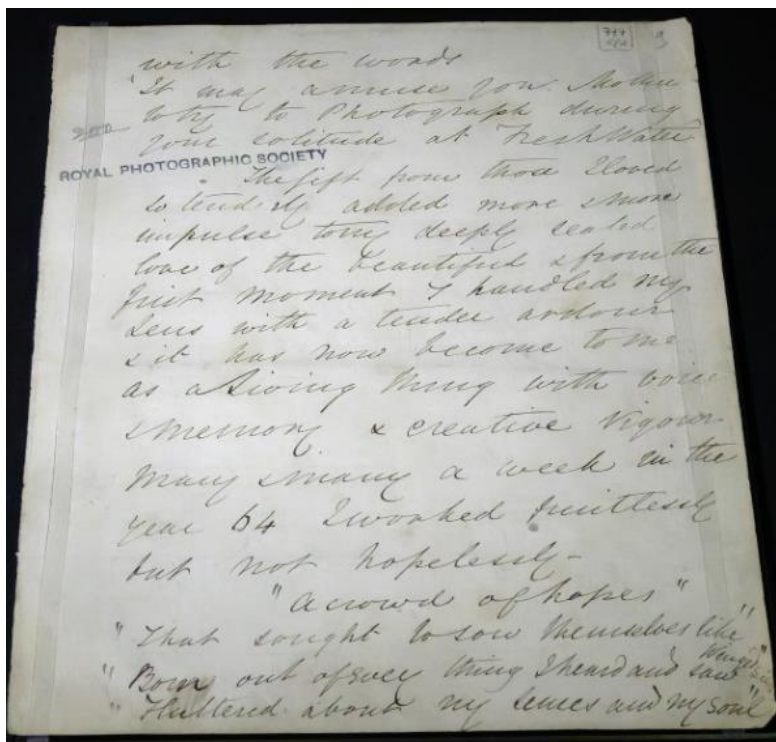 with the words
"It may amuse you Mother
to try to Photograph during
your solitude at FreshWater"
ROYAL PHOTOGRAPHIC SOCIETY
The gift from those I loved
so tenderly added more & more
impulse to my deeply seated
love of the beautiful & from the
first moment I handled my
Lens with a tender ardour
& it has now become to me
as a living thing with voice
& memory & creative Vigour
Many & many a week in the
year 64 I worked fruitlessly
but not hopelessly -
"A crowd of hopes"
"That sought to sow themselves like
winged
"Born out of every thing I heard and saw
"Fluttered about my senses and my soul"